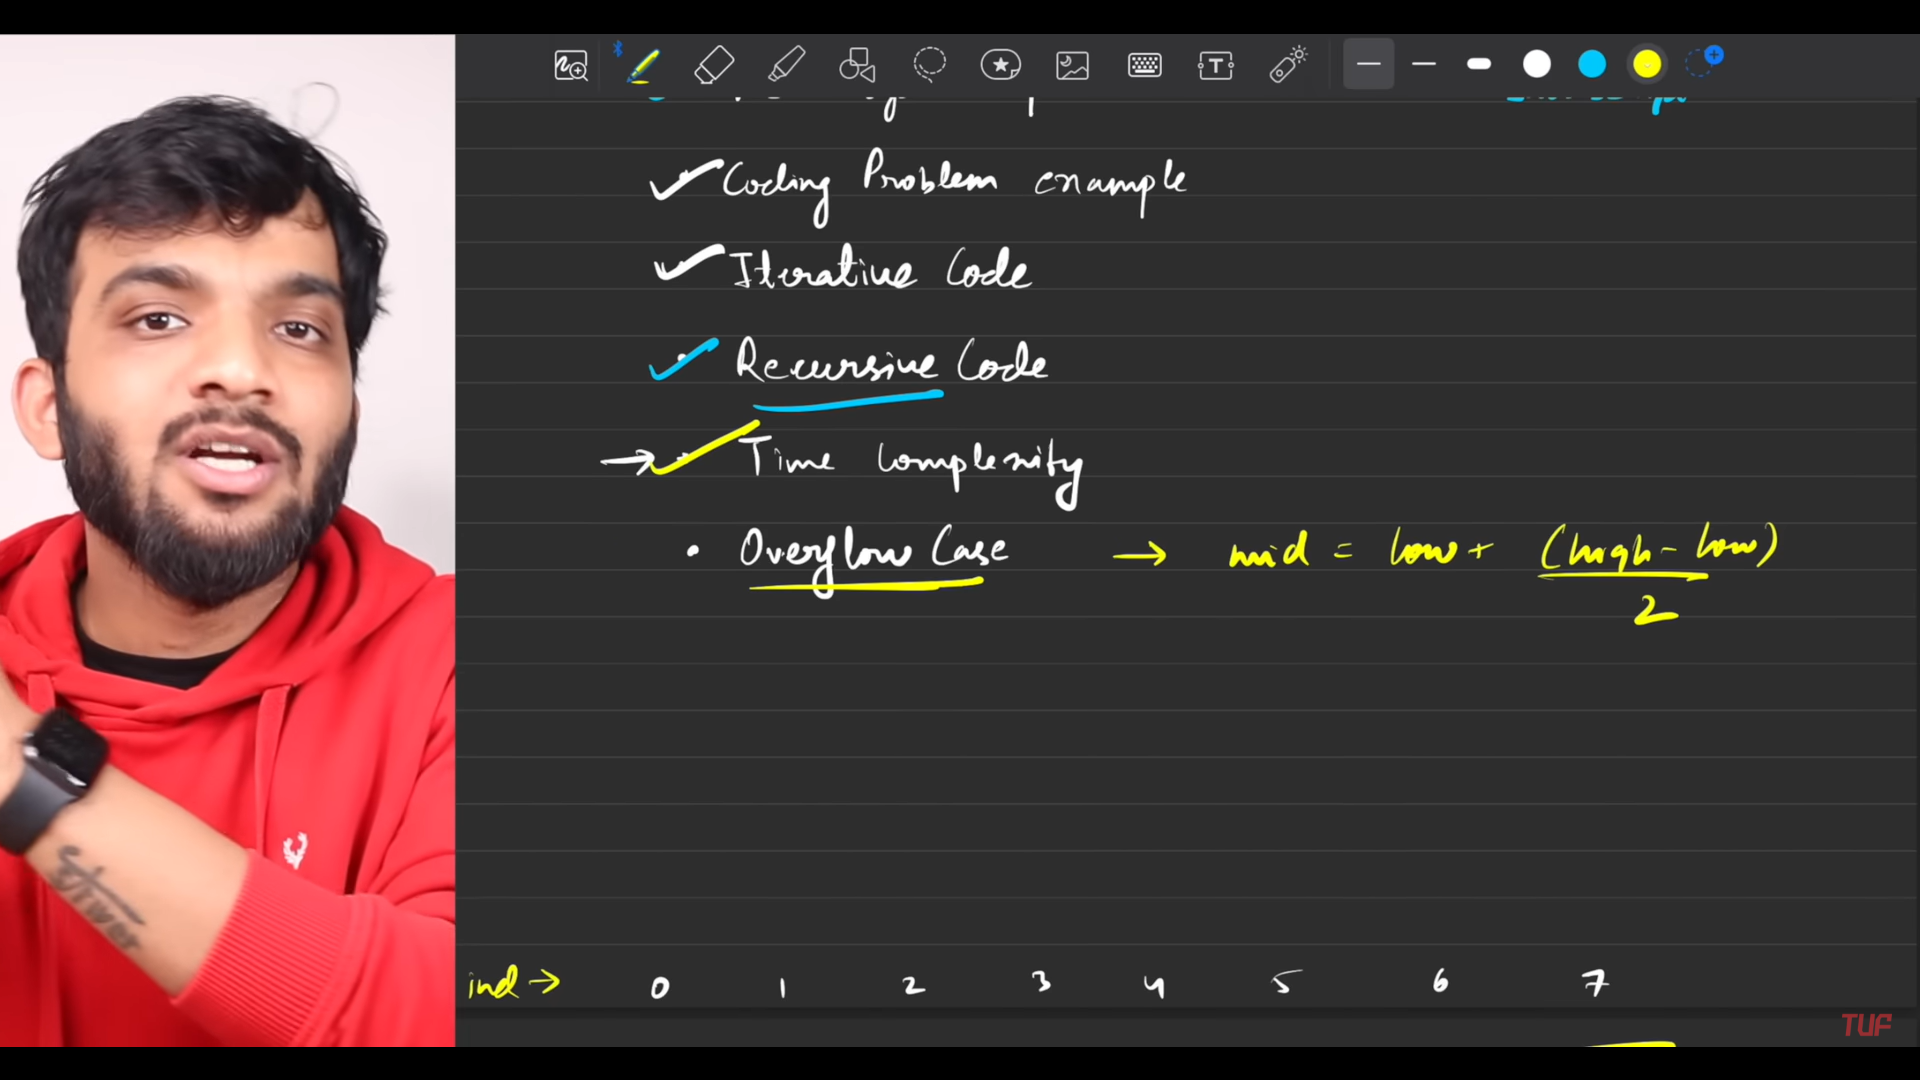 Coding Problem example
Iterative Code
Recursive Code
→ Time Complexity
• Overflow Case → mid = low + (high - low)
2
ind → 0 1 2 3 4 5 6 7
TUF